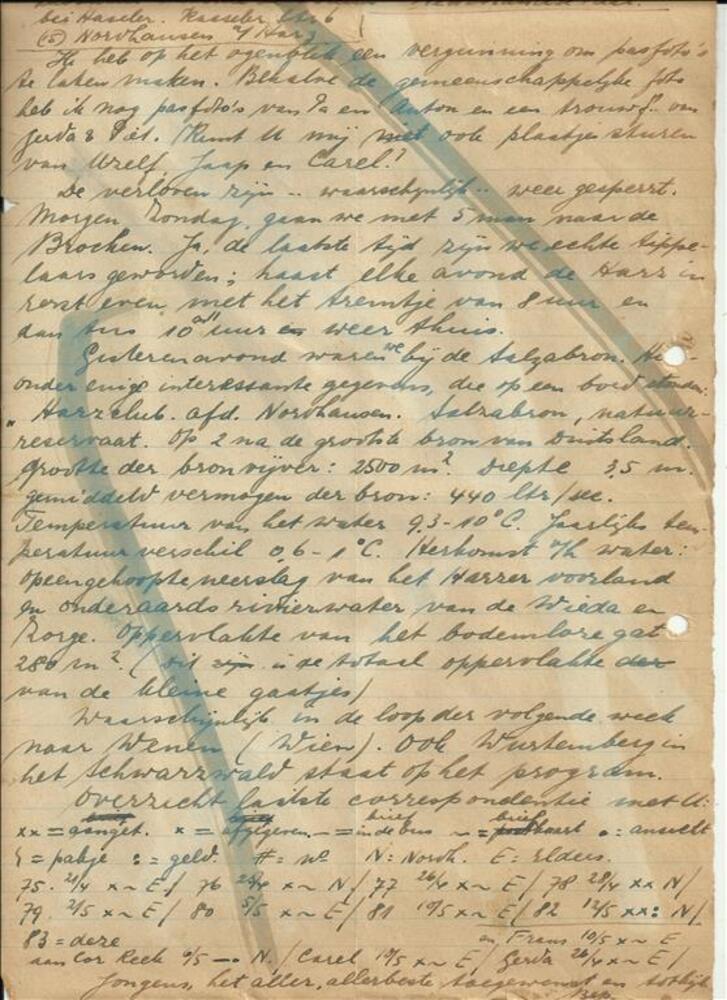 bei Haseler. Kasseler
(5) Nordhausen a/ Harz
Ik heb op het ogenblik een vergunning om pasfoto's
te laten maken. Behalve de gemeenschappelijke foto
heb ik nog pasfoto's van Pa en Anton en een trouwf. van
Gerda & Piet. Kunt U mij niet ook plaatjes sturen
van Uzelf, Jaap en Carel?
De verloven zijn .. waarschijnlijk .. weer gesperrt.
Morgen, Zondag, gaan we met 5 man naar de
Brocken. Ja, de laatste tijd zijn we echte tippe-
laars geworden; haast elke avond de Harz in
eerst even met het tremtje van 8 uur en
dan om 10 uur weer thuis.
Gisterenavond waren we bij de Salzabron.
onder enige interessante gegevens, die op een bord stonden:
"Harzclub. afd. Nordhausen. Salzabron, natuur-
reservaat. Op 2 na de grootste bron van Duitsland.
Grootte der bronvijver: 2500 m². Diepte 3,5 m.
gemiddeld vermogen der bron: 440 ltr/sec.
Temperatuur van het water 9,3-10°C. Jaarlijks tem-
peratuurverschil 0,6-1°C. Herkomst v/h water:
opeengehoopte neerslag van het Harzer voorland
en onderaards rivierwater van de Wieda en
Zorge. Oppervlakte van het bodemloze gat
280 m². (dit is de totaal oppervlakte der
van de kleine gaatjes)
Waarschijnlijk in de loop der volgende week
naar Wenen (Wien). Ook Wurtemberg in
het Schwarzwald staat op het program.
Overzicht laatste correspondentie met U:
xx = gangst. x = afgegeven. — = in de bus ~ = brief .= ansicht
= pakje := geld. #= no N: Nordh. E: Elders.
75. 21/4 x~ E / 76 x~ N / 77 26/4 x~ E / 78 28/4 xx N/
79. 2/5 x~ E / 80 5/5 x~ E / 81 10/5 x~ E / 82 12/5 xx: N/
83 = deze en Frans 10/5 x~ E
aan Cor Reek 9/5 — N. / Carel 10/5 x~ E / Gerda 26/4 x~ E /
Jongens, het aller, allerbeste toegewenst en tot kijk
Bep.